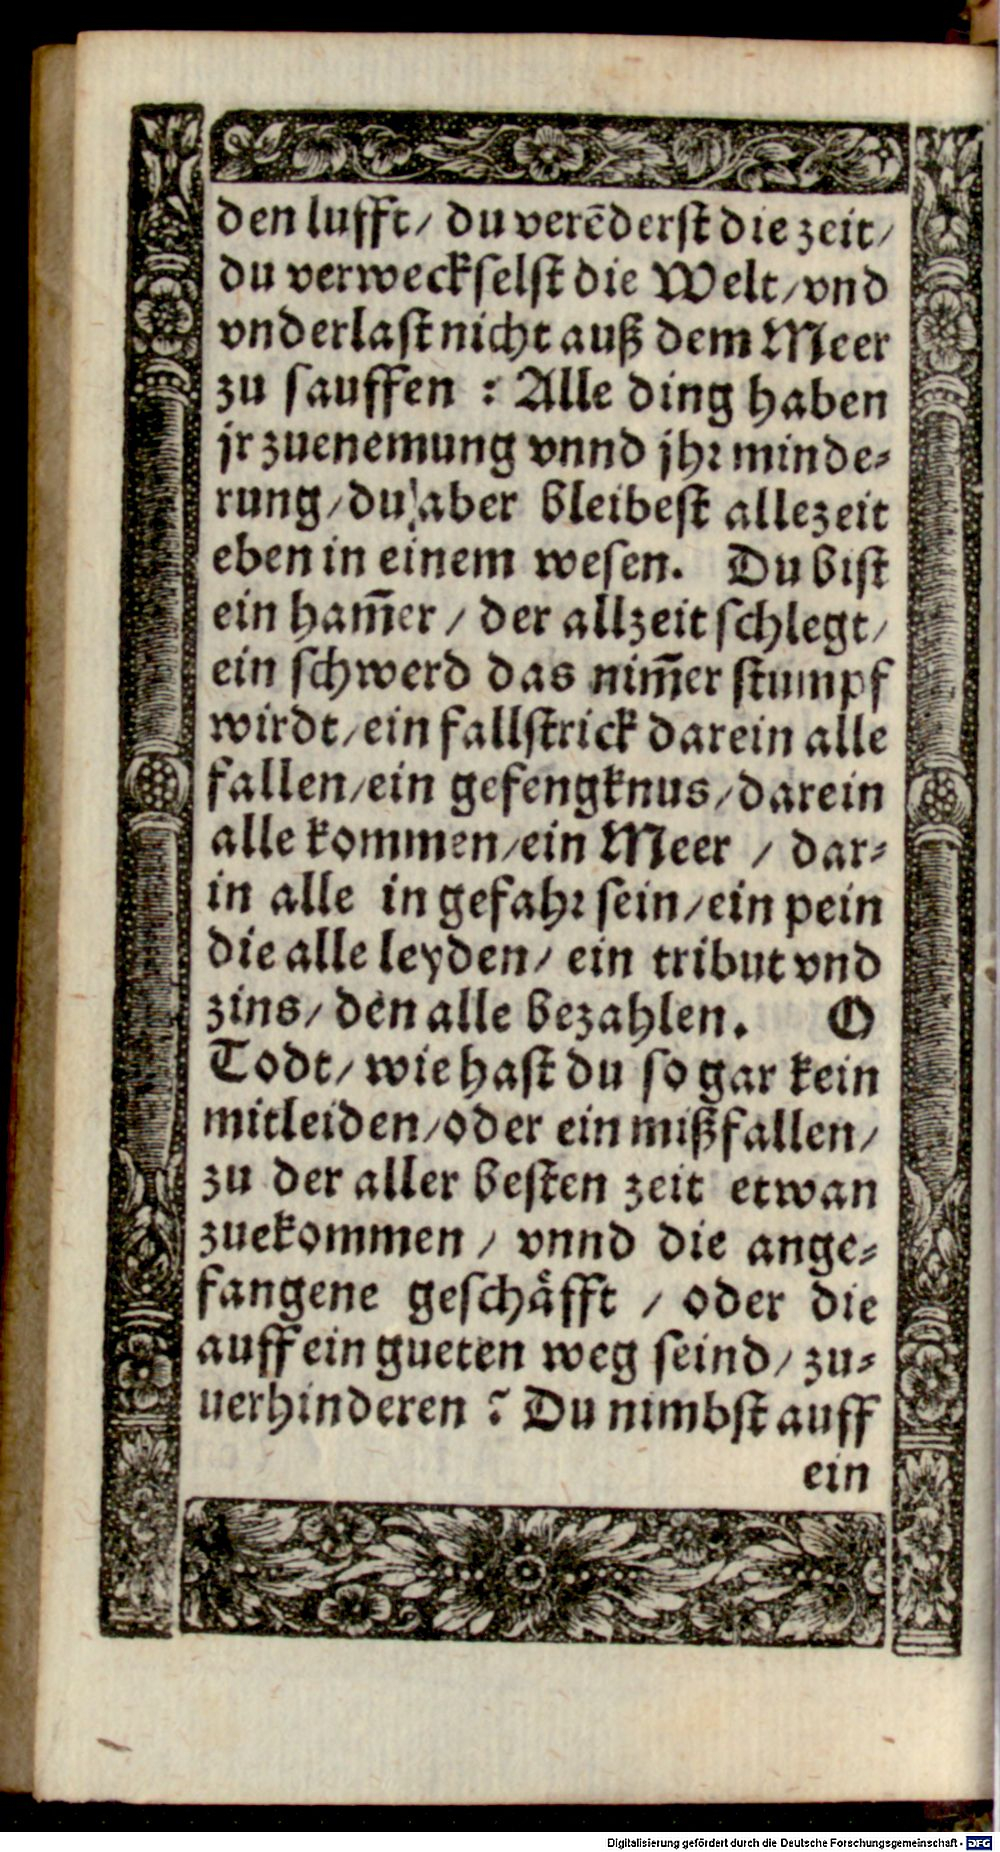 den lufft/ du verēderst die zeit/
du verweckselst die Welt/vnd
vnderlast nicht auß dem Meer
zu sauffen : Alle ding haben
jr zuenemung vnnd jhr minde-
rung/du aber bleibest allezeit
eben in einem wesen. Du bist
ein ham̄er / der allzeit schlegt/
ein schwerd das nim̄er stumpf
wirdt/ein fallstrick darein alle
fallen/ein gefengknus/darein
alle kommen/ein Meer / dar-
in alle in gefahr sein/ein pein
die alle leyden/ ein tribut vnd
zins/ den alle bezahlen. O
Todt/ wie hast du so gar kein
mitleiden/oder ein mißfallen/
zu der aller besten zeit etwan
zuekommen / vnnd die ange-
fangene geschäfft / oder die
auff ein gueten weg seind/ zu-
uerhinderen ? Du nimbst auff
ein
Digitalisierung gefördert durch die Deutsche Forschungsgemeinschaft - DFG